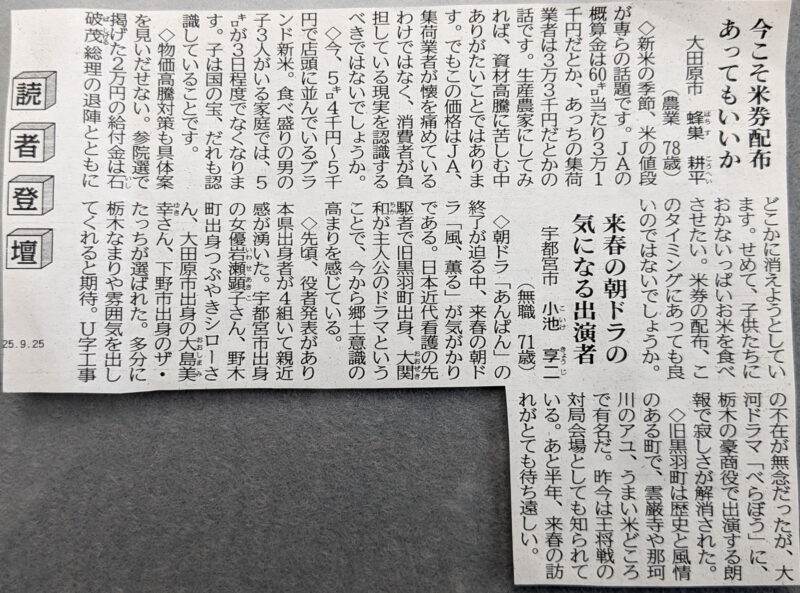 今こそ米券配布
あってもいいか
大田原市　蜂巣　耕平
はちす　こうへい
（農業　78歳）
◇新米の季節、米の値段
が専らの話題です。JAの
概算金は60㌔当たり3万1
千円だとか、あっちの集荷
業者は3万3千円だとかの
話です。生産農家にしてみ
れば、資材高騰に苦しむ中
ありがたいことではありま
す。でもこの価格はJA、
集荷業者が懐を痛めている
わけではなく、消費者が負
担している現実を認識する
べきではないでしょうか。
◇今、5㌔4千円～5千
円で店頭に並んでいるブラ
ンド新米。食べ盛りの男の
子3人がいる家庭では、5
㌔が3日程度でなくなりま
す。子は国の宝、だれも認
識していることです。
◇物価高騰対策も具体案
を見いだせない。参院選で
掲げた2万円の給付金は石
破茂総理の退陣とともに
どこかに消えようとしてい
ます。せめて、子供たちに
おかないっぱいお米を食べ
させたい。米券の配布、こ
のタイミングにあっても良
いのではないでしょうか。
来春の朝ドラの
気になる出演者
宇都宮市　小池　享二
こいけ　きょうじ
（無職　71歳）
◇朝ドラ「あんぱん」の
終了が迫る中、来春の朝ド
ラ「風、薫る」が気がかり
である。日本近代看護の先
駆者で旧黒羽町出身、大関
おおぜき
和が主人公のドラマという
ちか
ことで、今から郷土意識の
高まりを感じている。
◇先頃、役者発表があり
本県出身者が4組いて親近
感が湧いた。宇都宮市出身
の女優岩瀬顕子さん、野木
いわせあきこ
町出身つぶやきシローさ
ん、大田原市出身の大島美
おおしまみ
幸さん、下野市出身のザ・
ゆき
たっちが選ばれた。多分に
栃木なまりや雰囲気を出し
てくれると期待。U字工事
の不在が無念だったが、大
河ドラマ「べらぼう」に、
栃木の豪商役で出演する朗
報で寂しさが解消された。
◇旧黒羽町は歴史と風情
のある町で、雲巌寺や那珂
川のアユ、うまい米どころ
で有名だ。昨今は王将戦の
対局会場としても知られて
いる。あと半年、来春の訪
れがとても待ち遠しい。
読者登壇
25.9.25